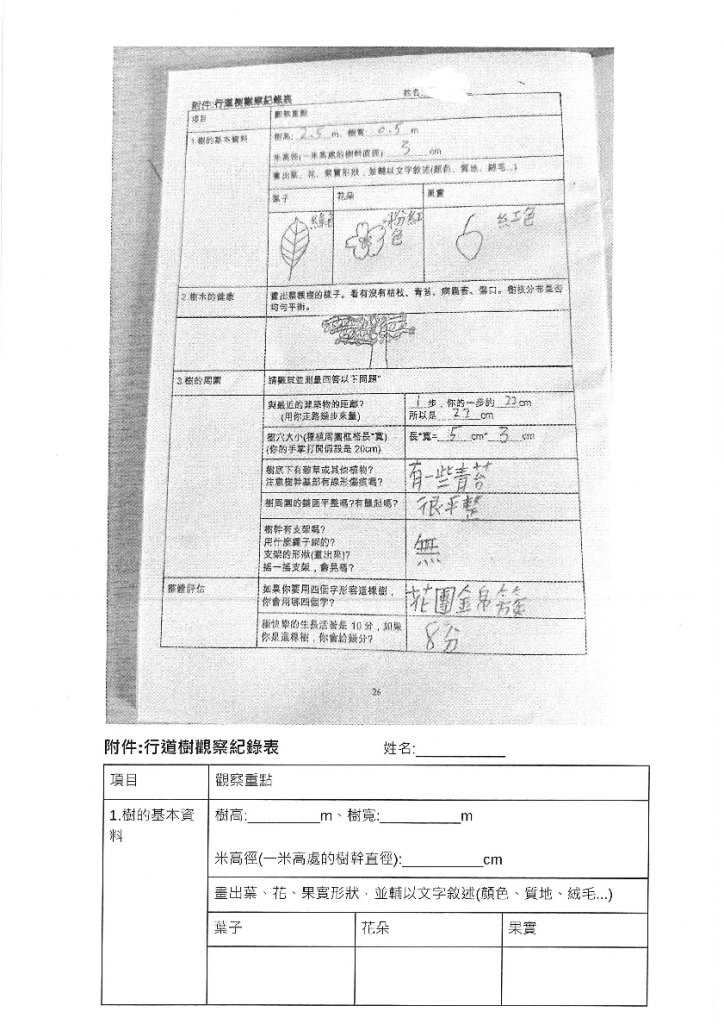 附件:行道樹觀察紀錄表 姓名:
項目 觀察重點
1.樹的基本資料 樹高: 2.5 m、樹寬: 0.5 m
米高徑(一米高處的樹幹直徑): 3 cm
畫出葉、花、果實形狀，並輔以文字敘述(顏色、質地、絨毛...)
葉子 花朵 果實
綠色 粉紅色 紅色
2.樹木的健康 畫出整棵樹的樣子。看有沒有枯枝、青苔、病蟲害、傷口。樹枝分布是否
均勻平衡。
3.樹的周圍 請觀察並測量回答以下問題"
與最近的建築物的距離? 1 步，你的一步約 22 cm
(用你走路幾步來量) 所以是 22 cm
樹穴大小(種植周圍框格長*寬) 長*寬= 5 cm* 3 cm
(你的手掌打開假設是 20cm)
樹底下有雜草或其他植物? 有一些青苔
注意樹幹基部有線形傷痕嗎?
樹周圍的鋪面平整嗎?有隆起嗎? 很平整
樹幹有支架嗎? 無
用什麼繩子綁的?
支架的形狀(畫出來)?
搖一搖支架，會晃嗎?
整體評估 如果你要用四個字形容這棵樹， 花團錦簇
你會用哪四個字?
樹快樂的生長活著是 10 分，如果 8分
你是這棵樹，你會給幾分?
26
附件:行道樹觀察紀錄表 姓名:__________
項目 觀察重點
1.樹的基本資 樹高:________m、樹寬:_________m
料
米高徑(一米高處的樹幹直徑):_________cm
畫出葉、花、果實形狀，並輔以文字敘述(顏色、質地、絨毛...)
葉子 花朵 果實